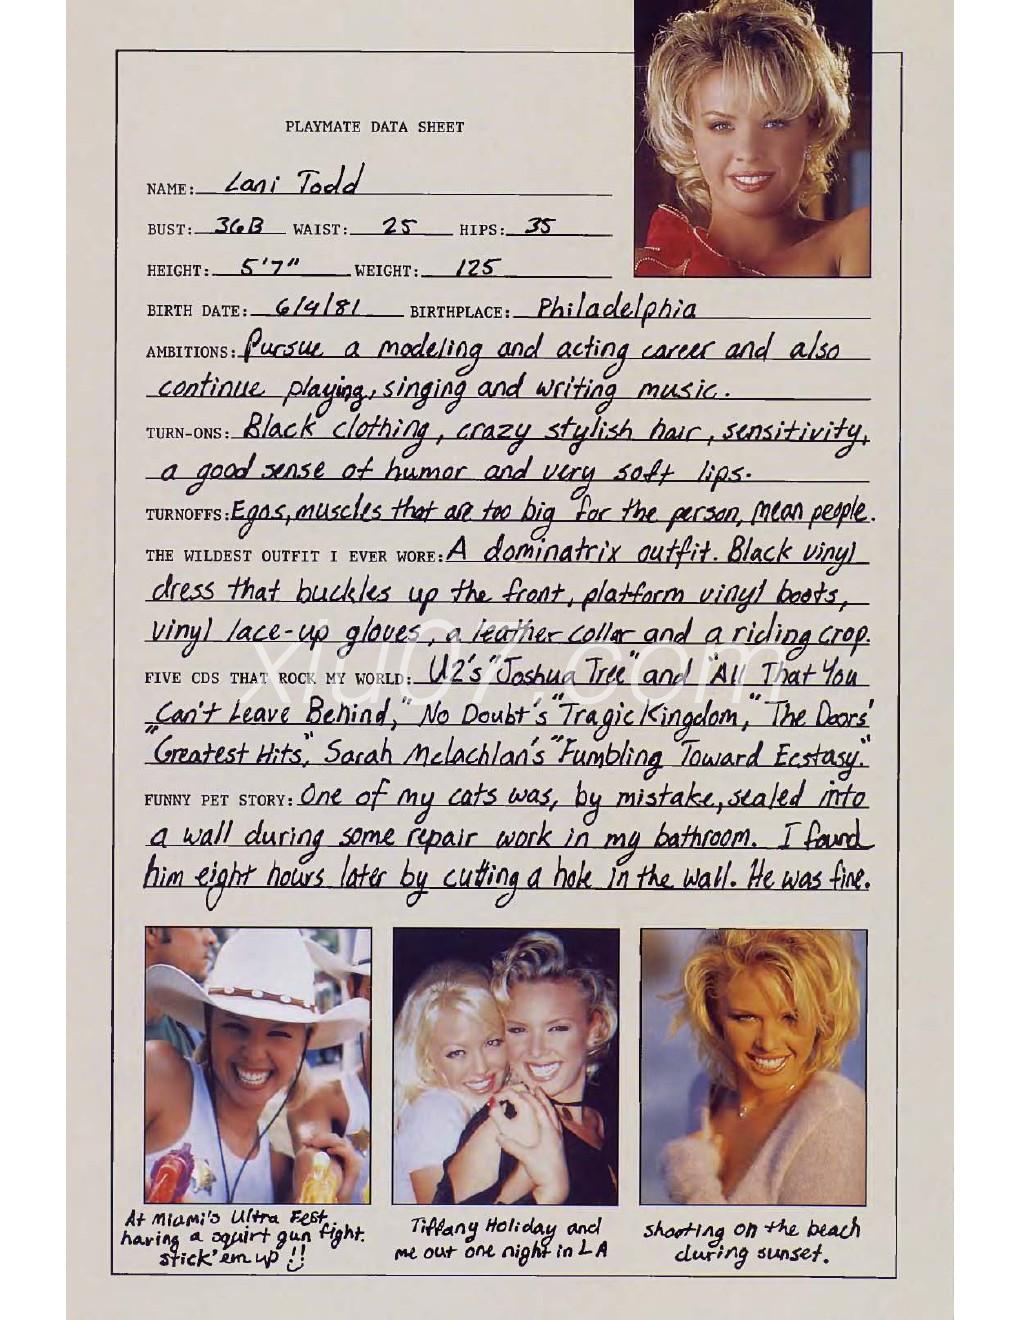 PLAYMATE DATA SHEET
NAME: Lani Todd
BUST: 36B WAIST: 25 HIPS: 35
HEIGHT: 5'7" WEIGHT: 125
BIRTH DATE: 6/4/81 BIRTHPLACE: Philadelphia
AMBITIONS: Pursue a modeling and acting career and also
continue playing, singing and writing music.
TURN-ONS: Black clothing, crazy stylish hair, sensitivity,
a good sense of humor and very soft lips.
TURNOFFS: Egos, muscles that are too big for the person, mean people.
THE WILDEST OUTFIT I EVER WORE: A dominatrix outfit. Black vinyl
dress that buckles up the front, platform vinyl boots,
vinyl lace-up gloves, a leather collar and a riding crop.
xiu07.com
FIVE CDS THAT ROCK MY WORLD: U2's "Joshua Tree" and "All That You
Can't Leave Behind," No Doubt's "Tragic Kingdom," The Doors'
"Greatest Hits," Sarah Mclachlan's "Fumbling Toward Ecstasy."
FUNNY PET STORY: One of my cats was, by mistake, sealed into
a wall during some repair work in my bathroom. I found
him eight hours later by cutting a hole in the wall. He was fine.
At Miami's Ultra Fest
having a squirt gun fight.
stick 'em up!!
Tiffany Holiday and
me out one night in LA
shooting on the beach
during sunset.